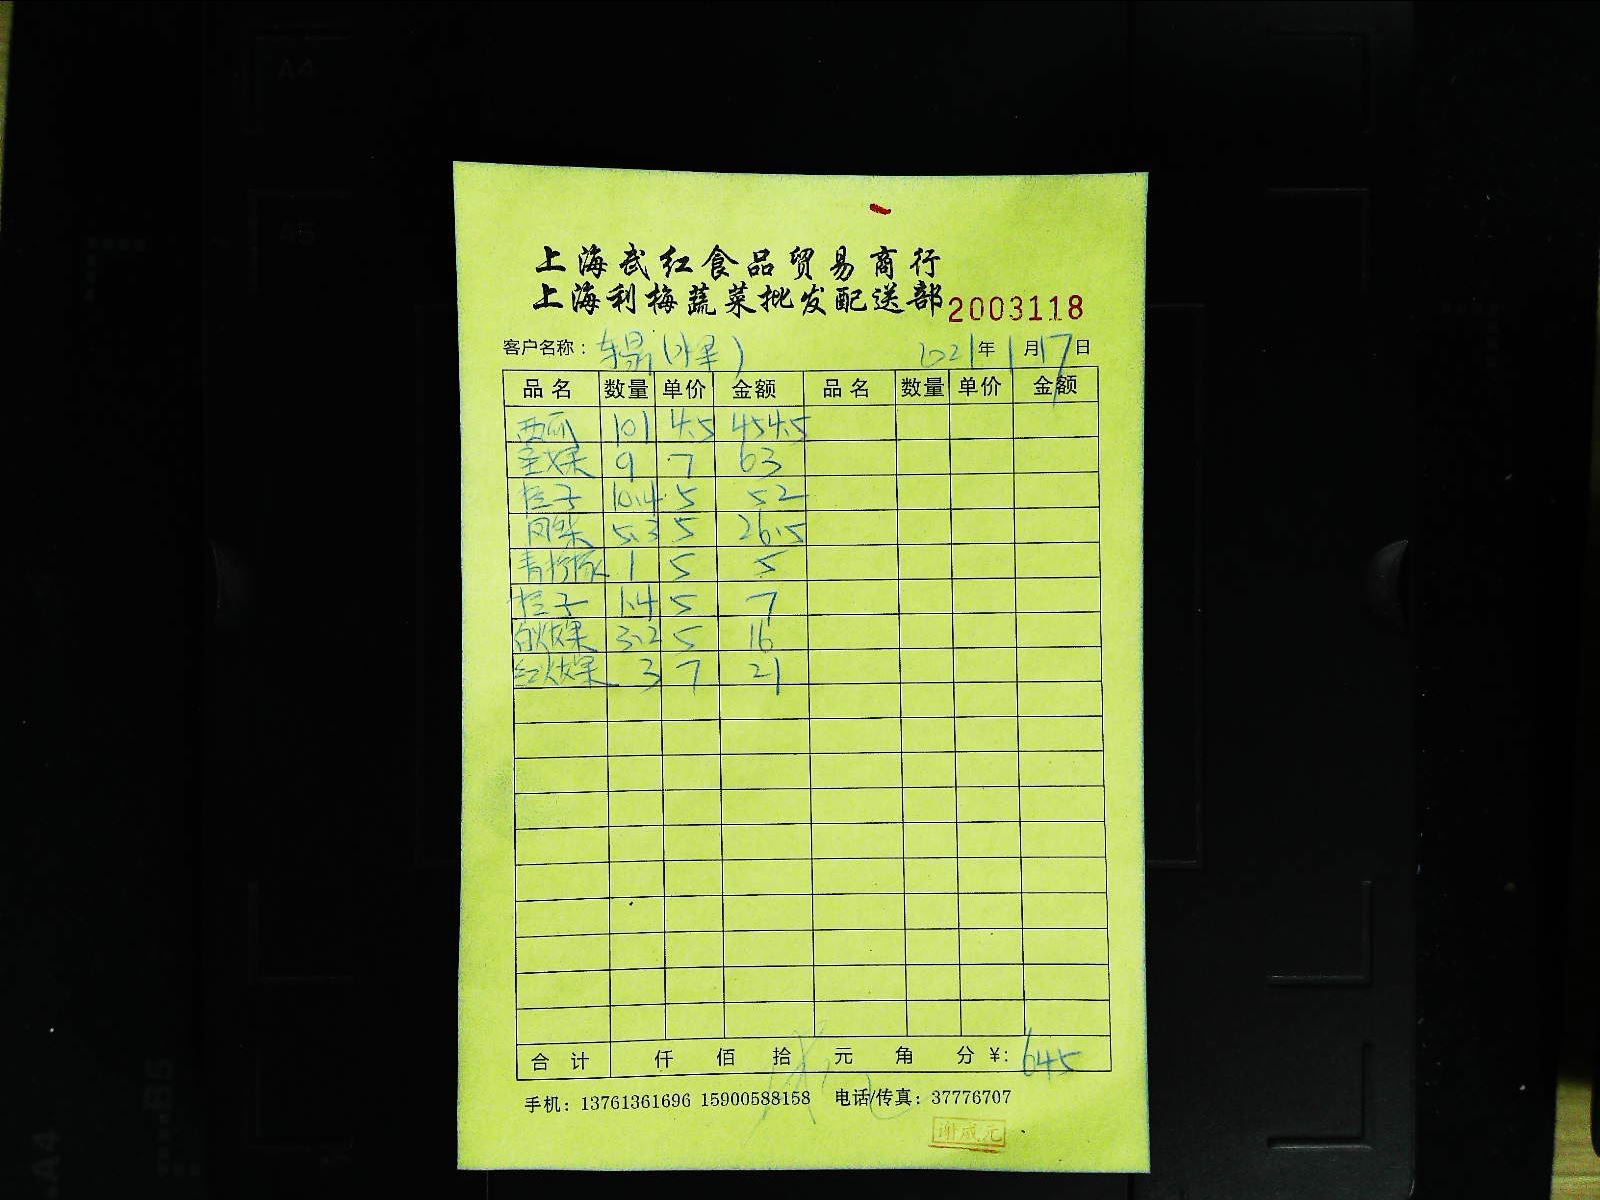 上海武红食品贸易商行
上海利梅蔬菜批发配送部 2003118
客户名称： (水果) 2021年1月17日
品名 数量 单价 金额 品名 数量 单价 金额
西瓜 101 4.5 454.5
9 7 63
桔子 10.4 5 52
5.3 5 26.5
青柠檬 1 5 5
橙子 1.4 5 7
白火龙果 3.2 5 16
红火龙果 3 7 21
合计 仟 佰 拾 元 角 分 ¥: 645
手机：13761361696 15900588158 电话/传真：37776707
谢咸元